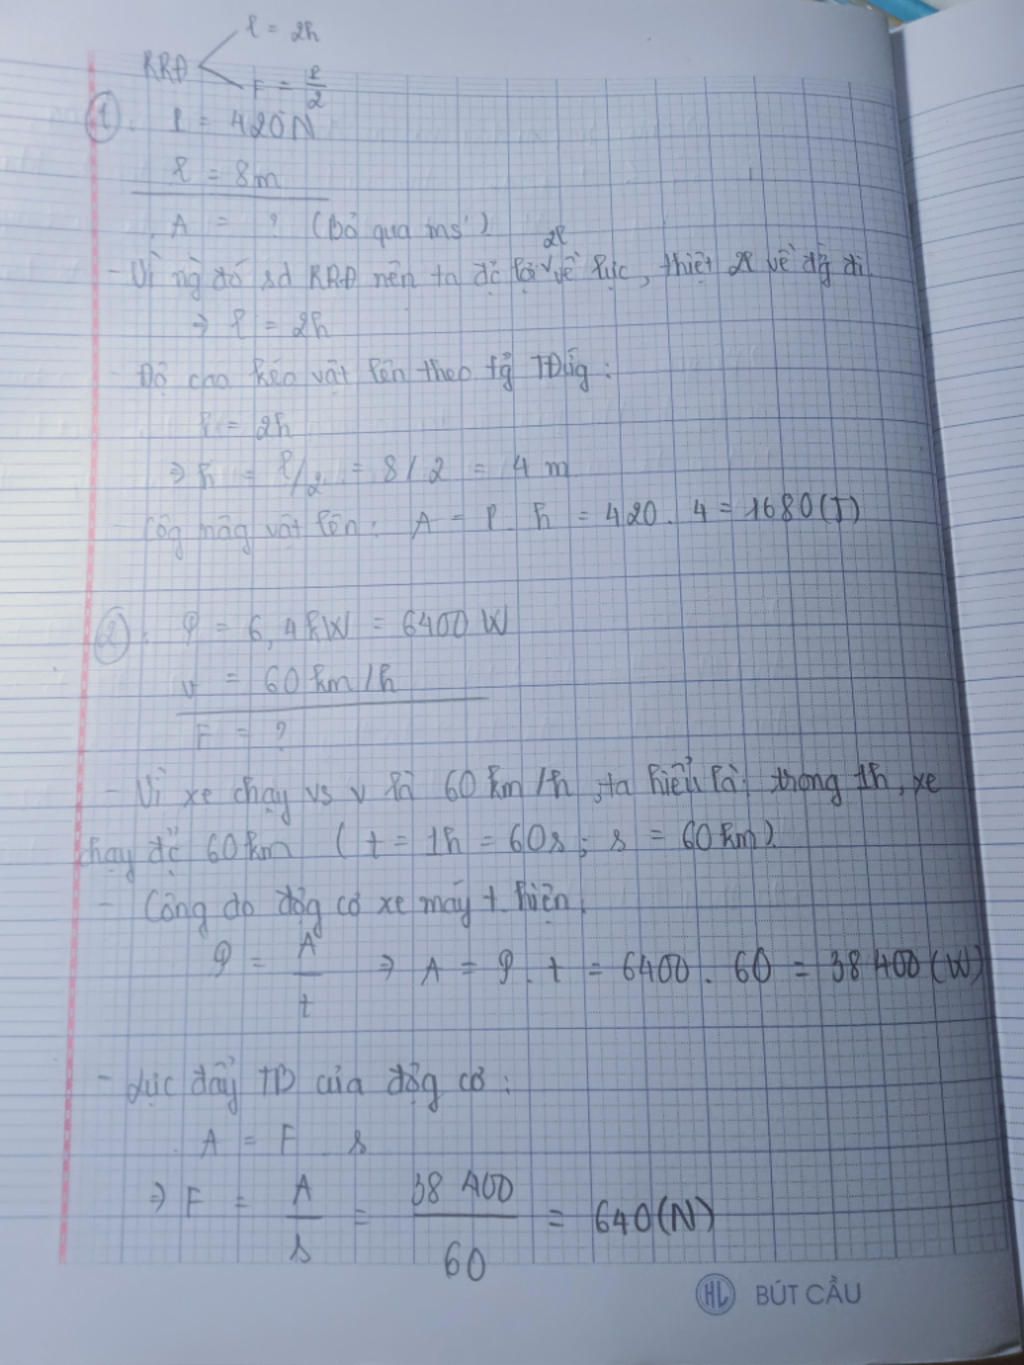 l = 2h
RRĐ
F = P/2
① P = 420N
l = 8m
A = ? (Bỏ qua ms')
2l
- Vì ng đó sd RRĐ nên ta đc lợi về lực, thiệt 2l về đg đi
⇒ l = 2h
Độ cao kéo vật lên theo fg TĐứg:
l = 2h
⇒ h = l/2 = 8/2 = 4 m
- Côg nâg vật lên: A = P. h = 420. 4 = 1680(J)
②. 𝒫 = 6,4kW = 6400 W
v = 60 km/h
F = ?
- Vì xe chạy vs v là 60 km/h, ta hiểu là: trong 1h, xe
chạy đc 60km (t = 1h = 60s; s = 60km).
- Công do độg cơ xe máy t. hiện.
𝒫 = A/t ⇒ A = 𝒫. t = 6400. 60 = 38 400 (W)
- Lực đẩy TB của độg cơ:
A = F s
⇒ F = A/s = 38 400/60 = 640(N)
HL BÚT CẦU